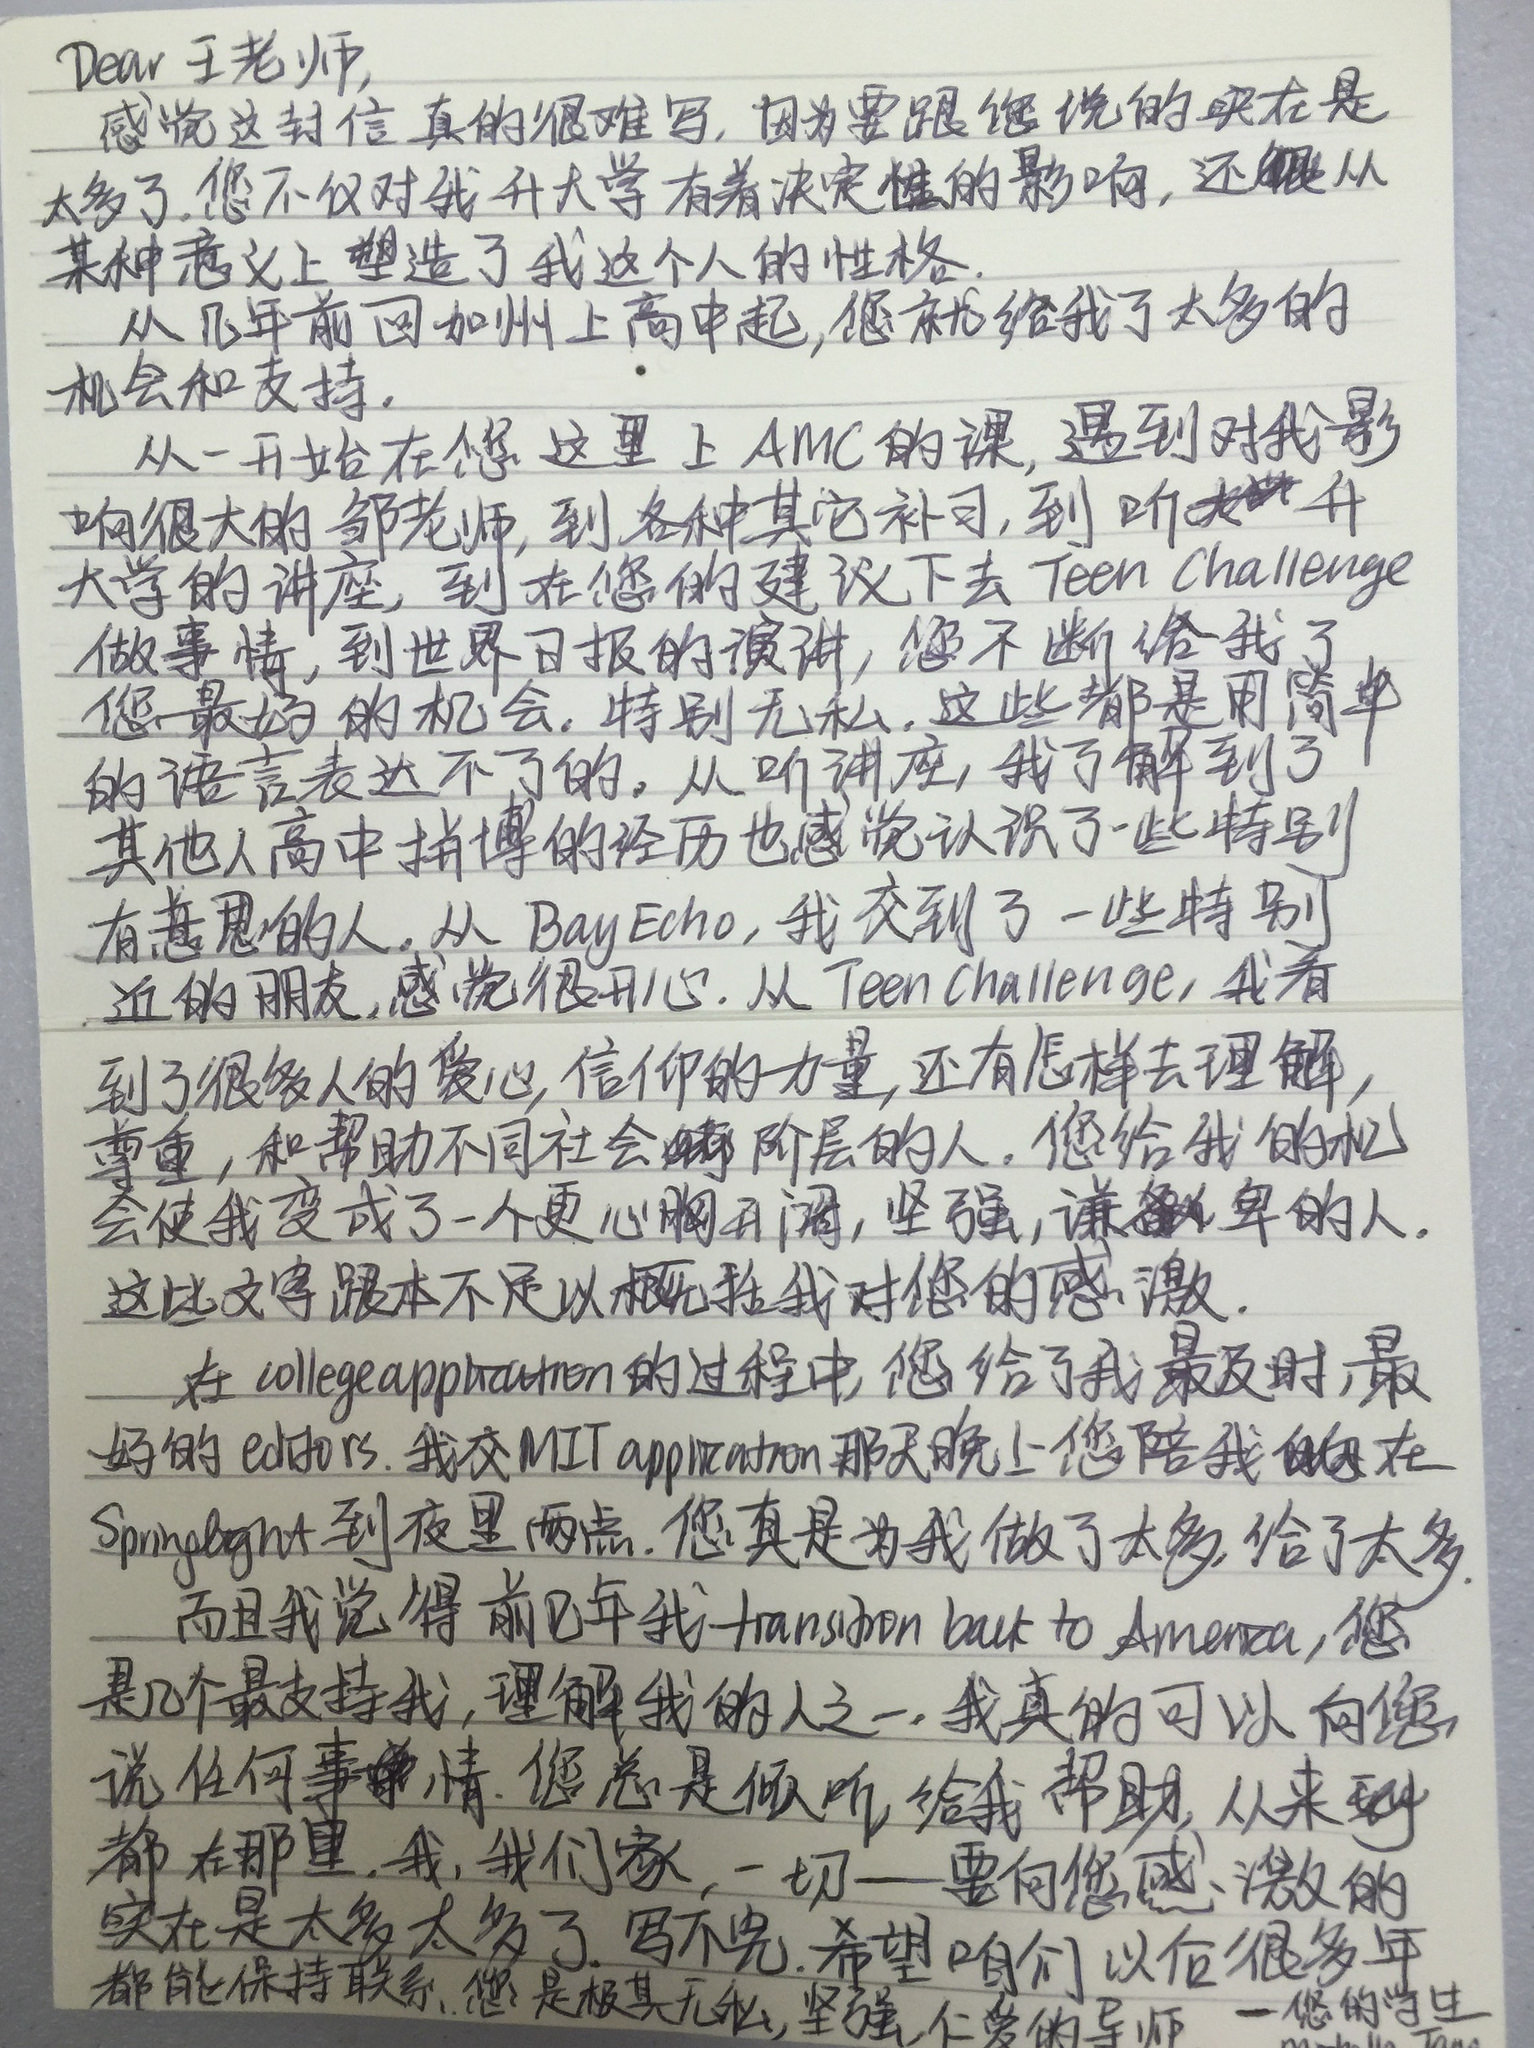 Dear 王老师,
感觉这封信真的很难写, 因为要跟您说的实在是
太多了. 您不仅对我升大学有着决定性的影响, 还从
某种意义上塑造了我这个人的性格.
从几年前回加州上高中起, 您就给我了太多的
机会和支持.
从一开始在您这里上 AMC 的课, 遇到对我影
响很大的邹老师, 到各种其它补习, 到听升
大学的讲座, 到在您的建议下去 Teen Challenge
做事情, 到世界日报的演讲, 您不断给我了
您最好的机会. 特别无私. 这些都是用简单
的语言表达不了的. 从听讲座, 我了解到了
其他人高中拼博的经历也感觉认识了一些特别
有意思的人. 从 BayEcho, 我交到了一些特别
近的朋友, 感觉很开心. 从 Teen Challenge, 我看
到了很多人的爱心, 信仰的力量, 还有怎样去理解,
尊重, 和帮助不同社会阶层的人. 您给我的机
会使我变成了一个更心胸开阔, 坚强, 谦卑的人.
这些文字跟本不足以概括我对您的感激.
在 college application 的过程中, 您给了我最及时, 最
好的 editors. 我交 MIT application 那天晚上您陪我在
Springlight 到夜里两点. 您真是为我做了太多, 给了太多.
而且我觉得前几年我 transition back to America, 您
是几个最支持我, 理解我的人之一. 我真的可以向您
说任何事情. 您总是倾听, 给我帮助, 从来
都在那里. 我, 我们家, 一切——要向您感激的
实在是太多太多了. 写不完. 希望咱们以后很多年
都能保持联系. 您是极其无私, 坚强, 仁爱的导师. —您的学生